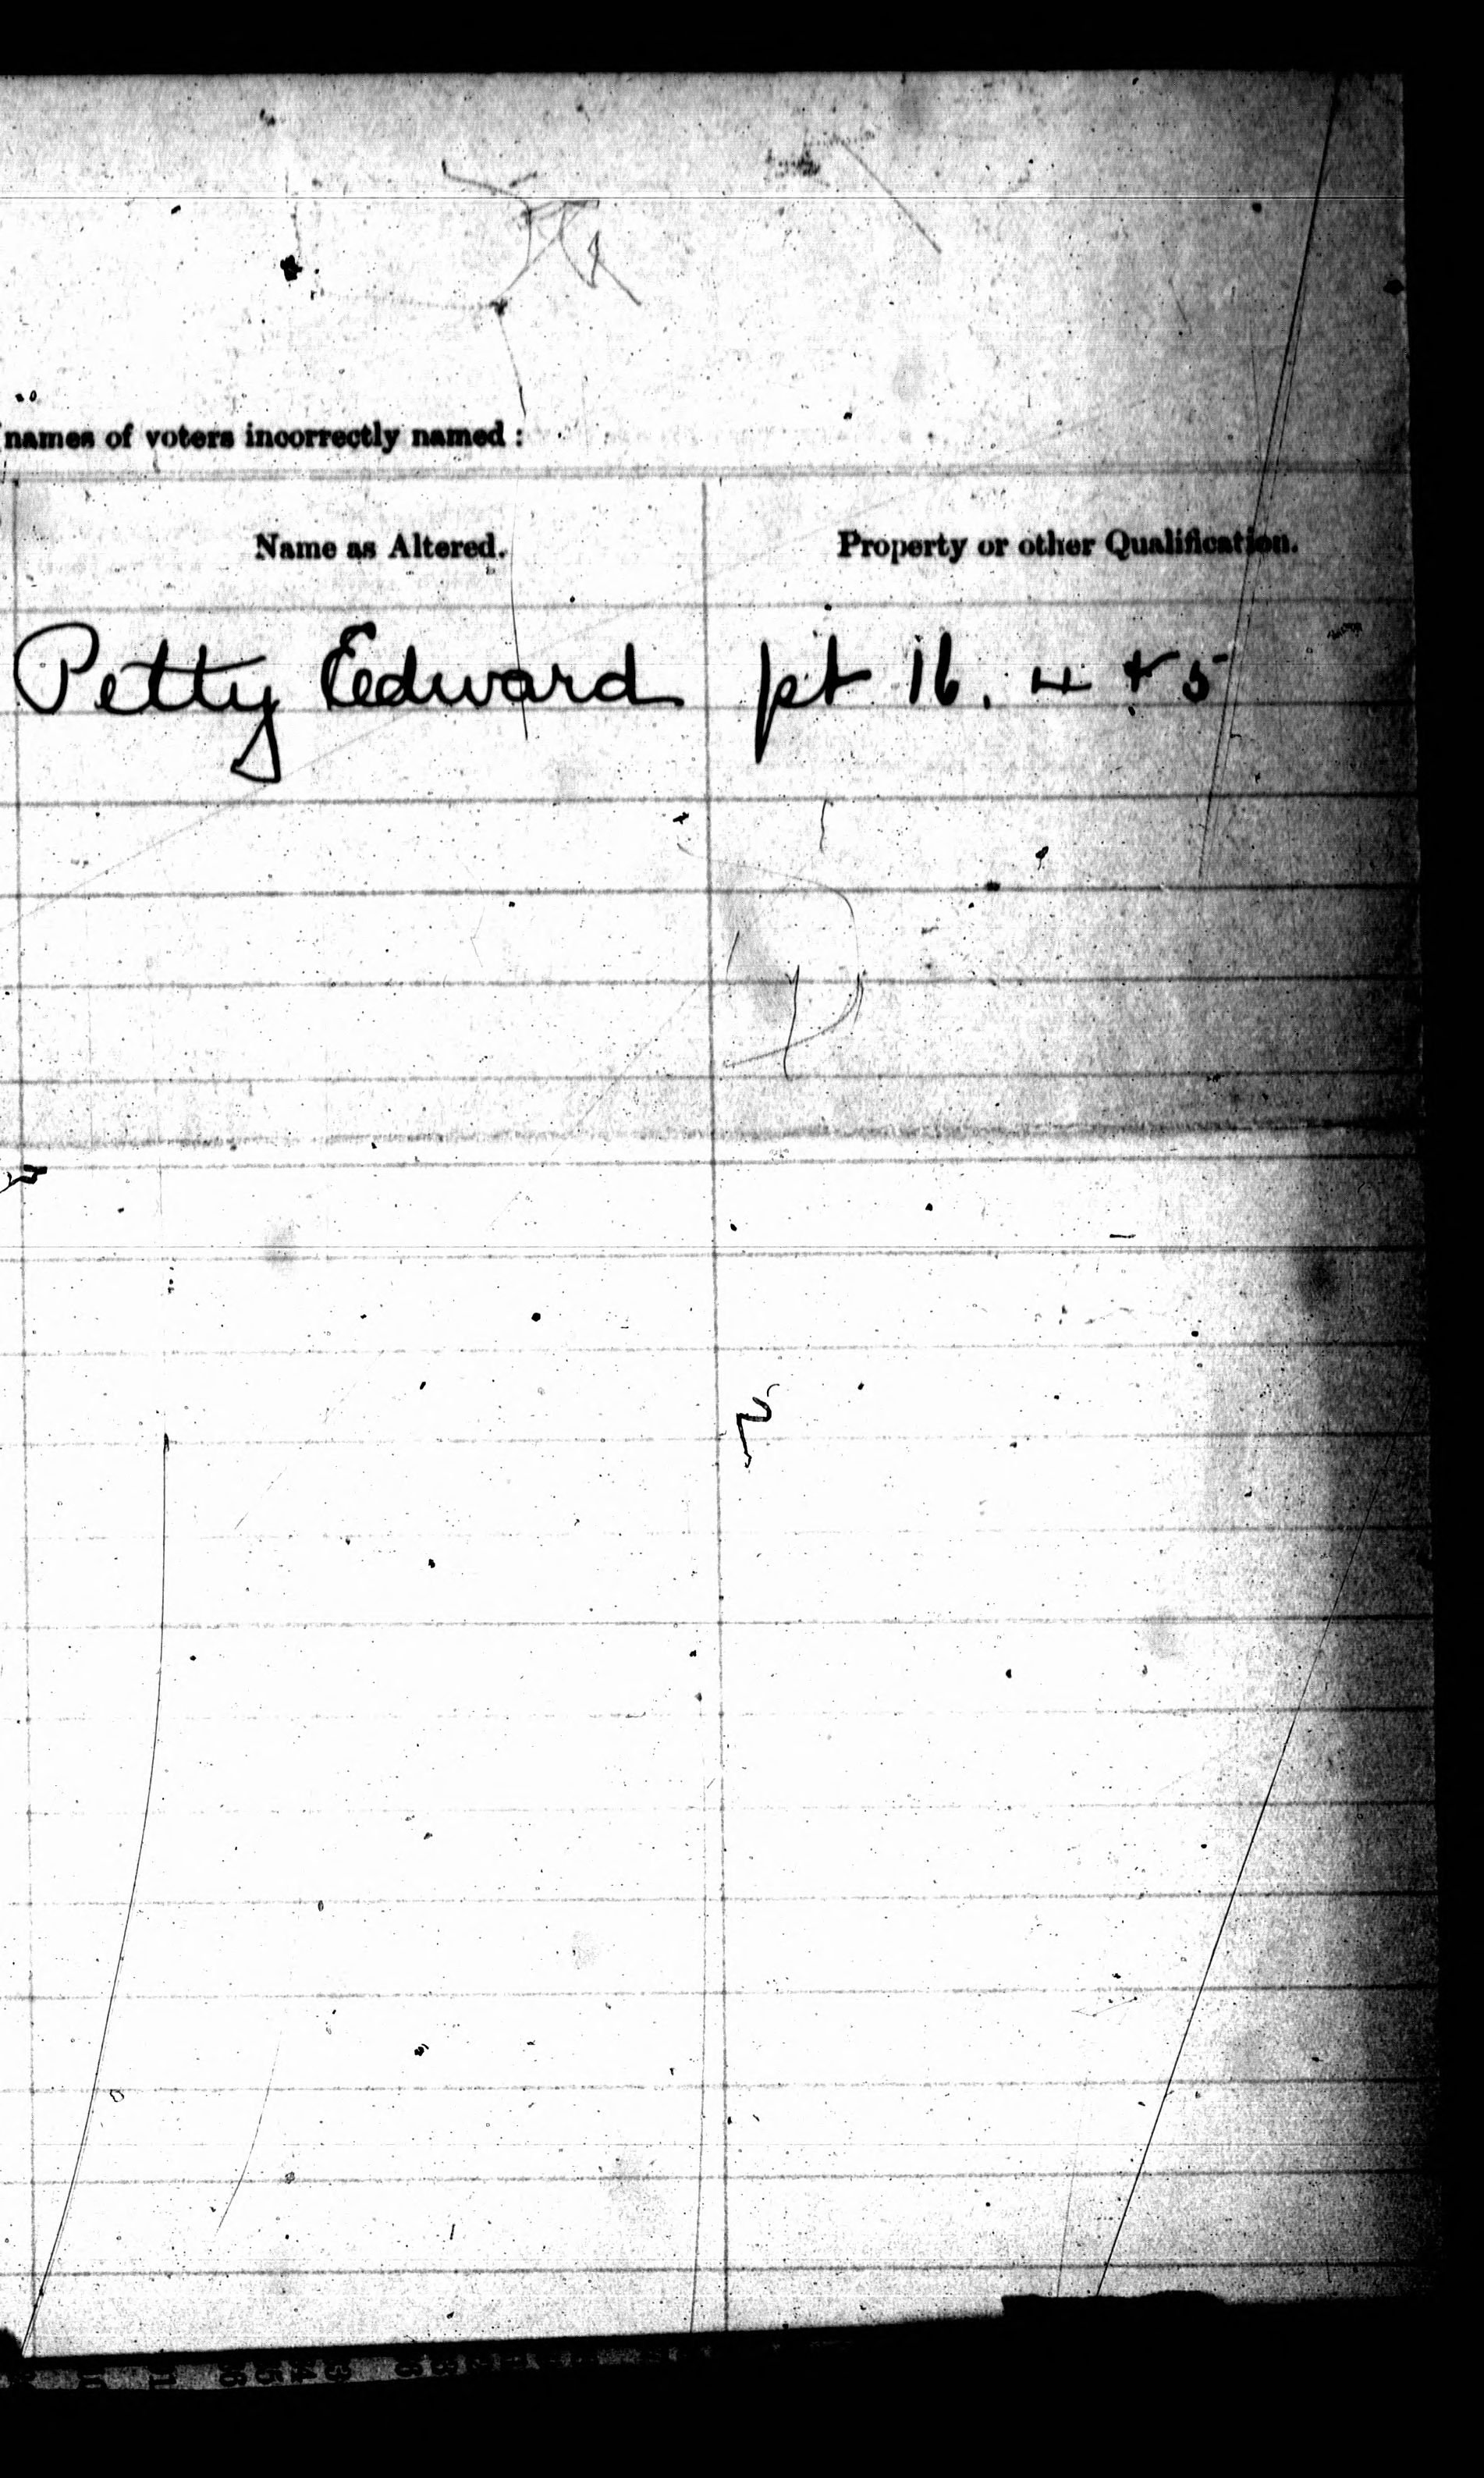 names of voters incorrectly named :
Name as Altered. Property or other Qualification.
Petty Edward pt 16. 4 + 5